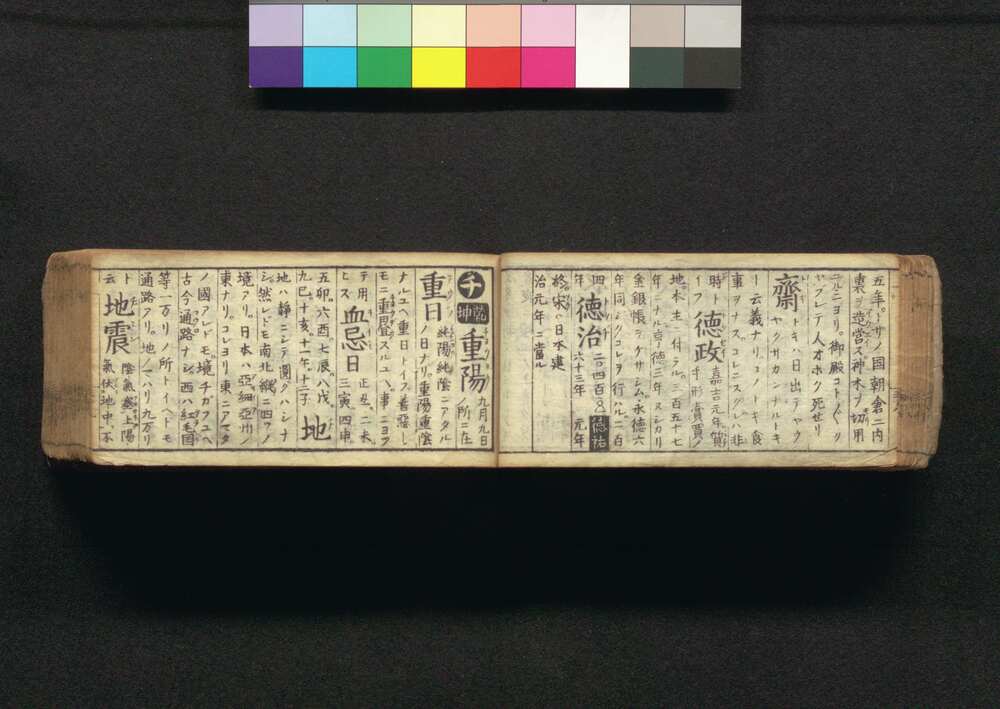 五年トサノ国朝倉ニ内
裏ヲ造営ス神木ヲ切用
ユルニヨリ。御殿コトゴトク
ヤブレテ人オホク死セリ
齋 トキハ日出テヤウ
ヤクサカンナルトキ
ト云義ナリ。コノトキ食
事ヲナスコレニスグレハ非
時ト 徳政 嘉吉元年質
イフ 手形賣買ノ
地本主ニ付テル。三百五十七
年ニナル享徳三年ヌシカリ
金銀帳ヲケサシム。永徳六
年同シクコレヲ行ハル二百
四 徳治 二〇四百 徳祐
年 六十三年 元年
格宋ノ日本建
治元年ニ當ル
チ 乾坤 重陽 九月九日
ノ所ニ在
重日 純陽純陰ニアタル
ノ日ナリ。重陽重陰
ナルユヘ重日トイフ善悪
モニ重畳スルユヘ事ニヨツ
テ用 血忌日 正丑。二未
ヒス 三寅四申
五卯。六酉七辰八戌。
九巳十亥。十一午十二子。 地
地ハ静ニシテ圓クハシナ
シ然レドモ南北網ニ四ツノ
境アリ。日本ハ亞細亞州ノ
東ナリ。コレヨリ東ニアマタ
ノ國アレドモ境チガフユヘ
古今通路ナシ西ハ紅毛国
等一万リノ所トイヘトモ
通路アリ。地ノ一ハリ九万リ
ト 地震 陰氣盛上陽
云 氣伏地中。不